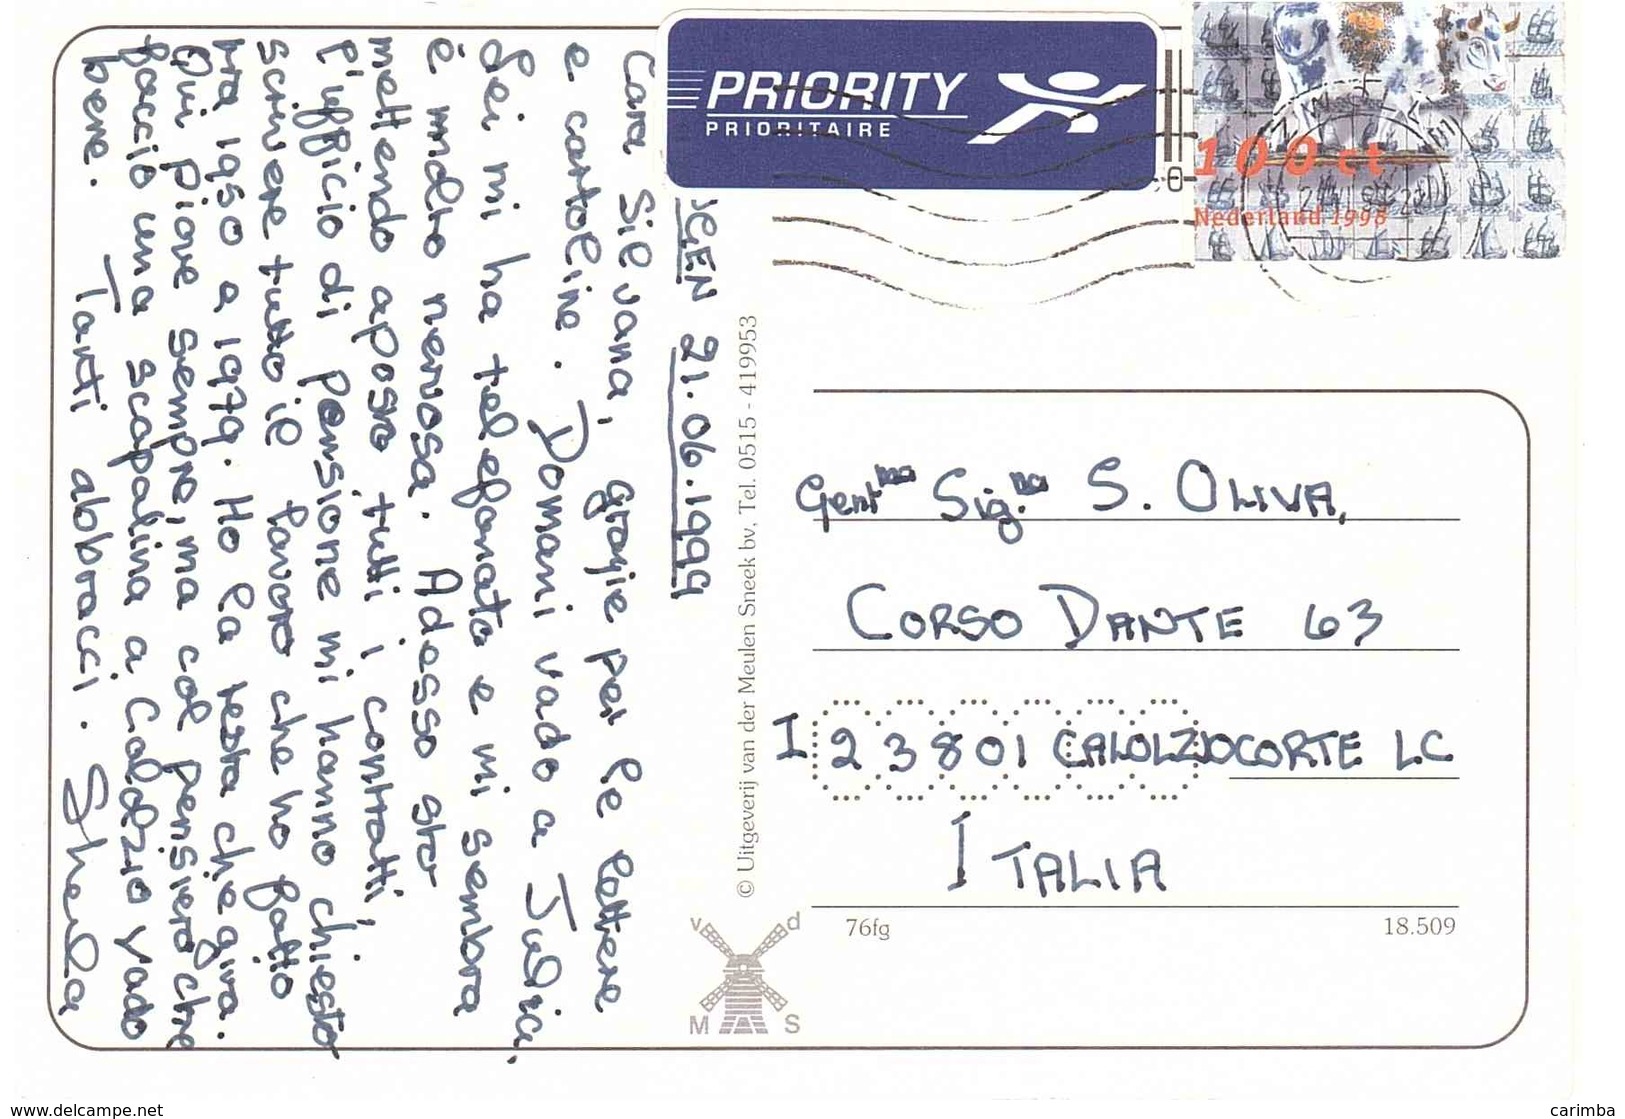 PRIORITY
PRIORITAIRE
100 ct
Nederland 1998
GEN 21.06.1999
Cara Silvana, grazie per le lettere
e cartoline. Domani vado a Julica,
Sei mi ha telefonato e mi sembra
è molto nervosa. Adesso sto
mettendo a posto tutti i contratti,
l'ufficio di pensione mi hanno chiesto
scrivere tutto il lavoro che ho fatto
tra 1950 a 1979. Ho la testa che gira.
Qui piove sempre, ma col pensiero che
faccio una scapalina a Calolzio vado
bene. Tanti abbracci. Sheila
© Uitgeverij van der Meulen Sneek bv, Tel. 0515 - 419953
Gent ma Sig. na S. OLIVA,
CORSO DANTE 63
I 23801 CALOLZIOCORTE LC
ITALIA
76fg
18.509
v d
M S
www.delcampe.net
carimba